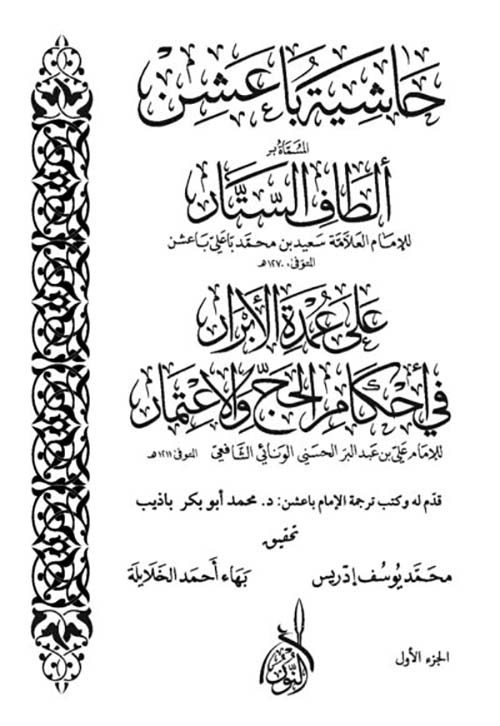 حَاشِيَة بُاعَشِن
المُسَمَّاة بـ
ألطاف السَّتَّار
للإمام العلَّامَة سَعيد بن محمّد بَاعَلي بَاعشن
المتوفى ١٢٧٠هـ
عَلى عُمدَة الأبْرَار
في أحْكَام الحَجّ وَالاعْتِمَار
للإمام عَليّ بن عَبد البَر الحسَني الونَائي الشَّافعيّ المتوفى ١٢١١هـ
قدّم له وكتب ترجمة الإمام باعشن: د. محمد أبو بكر باذيب
تحقيق
محَمَّد يُوسُف إدريس بَهَاء أحمَد الخَلَايلَة
الجزء الأول